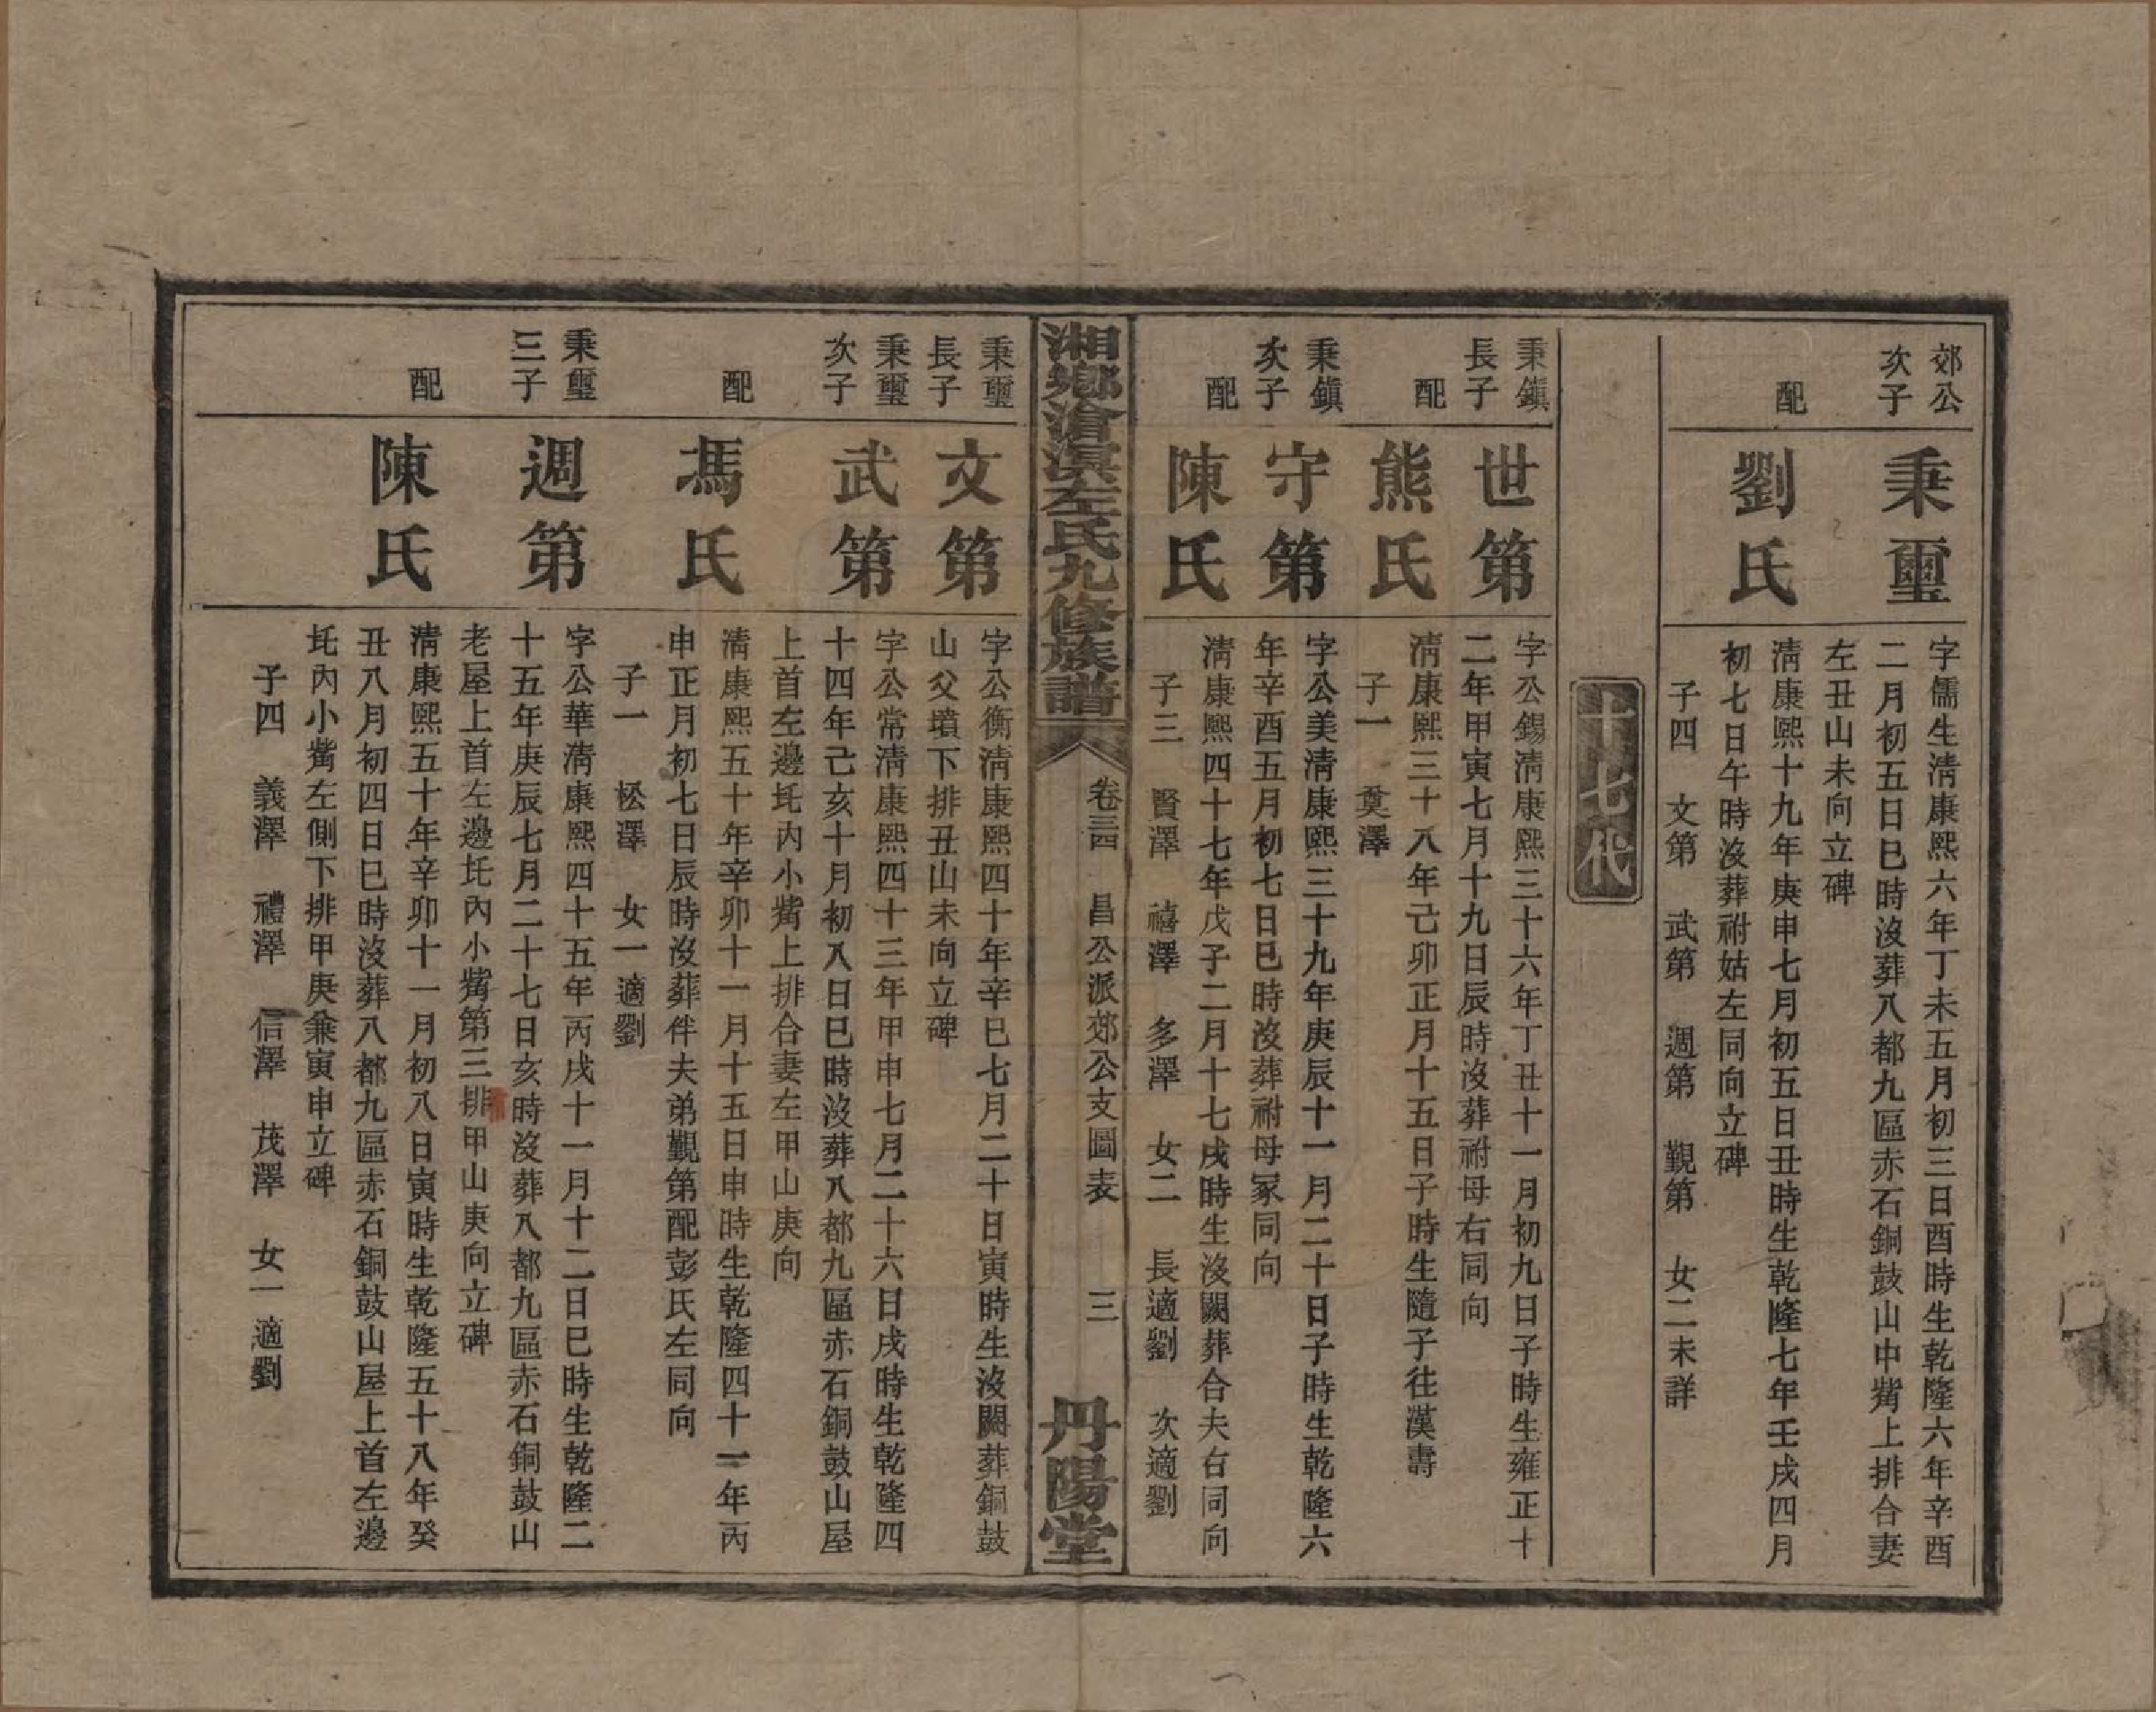 郊公
次子
秉璽
字儒生淸康熙六年丁未五月初三日酉時生乾隆六年辛酉
二月初五日巳時沒葬八都九區赤石銅鼓山中嘴上排合妻
左丑山未向立碑
配
劉氏
淸康熙十九年庚申七月初五日丑時生乾隆七年壬戌四月
初七日午時沒葬祔姑左同向立碑
子四　文第　武第　週第　觀第　女二未詳
十七代
秉鎭
長子
世第
字公錫淸康熙三十六年丁丑十一月初九日子時生雍正十
二年甲寅七月十九日辰時沒葬祔母右同向
配
熊氏
淸康熙三十八年己卯正月十五日子時生隨子往漢壽
子一　奠澤
秉鎭
次子
守第
字公美淸康熙三十九年庚辰十一月二十日子時生乾隆六
年辛酉五月初七日巳時沒葬祔母冢同向
配
陳氏
淸康熙四十七年戊子二月十七戌時生沒闕葬合夫右同向
子三　賢澤　禧澤　多澤　女二　長適劉　次適劉
湘鄕滄溟左氏九修族譜
卷三四　昌公派郊公支圖表　三
丹陽堂
秉璽
長子
文第
字公衡淸康熙四十年辛巳七月二十日寅時生沒闕葬銅鼓
山父墳下排丑山未向立碑
秉璽
次子
武第
字公常淸康熙四十三年甲申七月二十六日戌時生乾隆四
十四年己亥十月初八日巳時沒葬八都九區赤石銅鼓山屋
上首左邊圫內小嘴上排合妻左甲山庚向
配
馮氏
淸康熙五十年辛卯十一月十五日申時生乾隆四十一年丙
申正月初七日辰時沒葬伴夫弟觀第配彭氏左同向
子一　松澤　女一適劉
秉璽
三子
週第
字公華淸康熙四十五年丙戌十一月十二日巳時生乾隆二
十五年庚辰七月二十七日亥時沒葬八都九區赤石銅鼓山
老屋上首左邊圫內小嘴第三排甲山庚向立碑
配
陳氏
淸康熙五十年辛卯十一月初八日寅時生乾隆五十八年癸
丑八月初四日巳時沒葬八都九區赤石銅鼓山屋上首左邊
圫內小嘴左側下排甲庚兼寅申立碑
子四　義澤　禮澤　信澤　茂澤　女一適劉